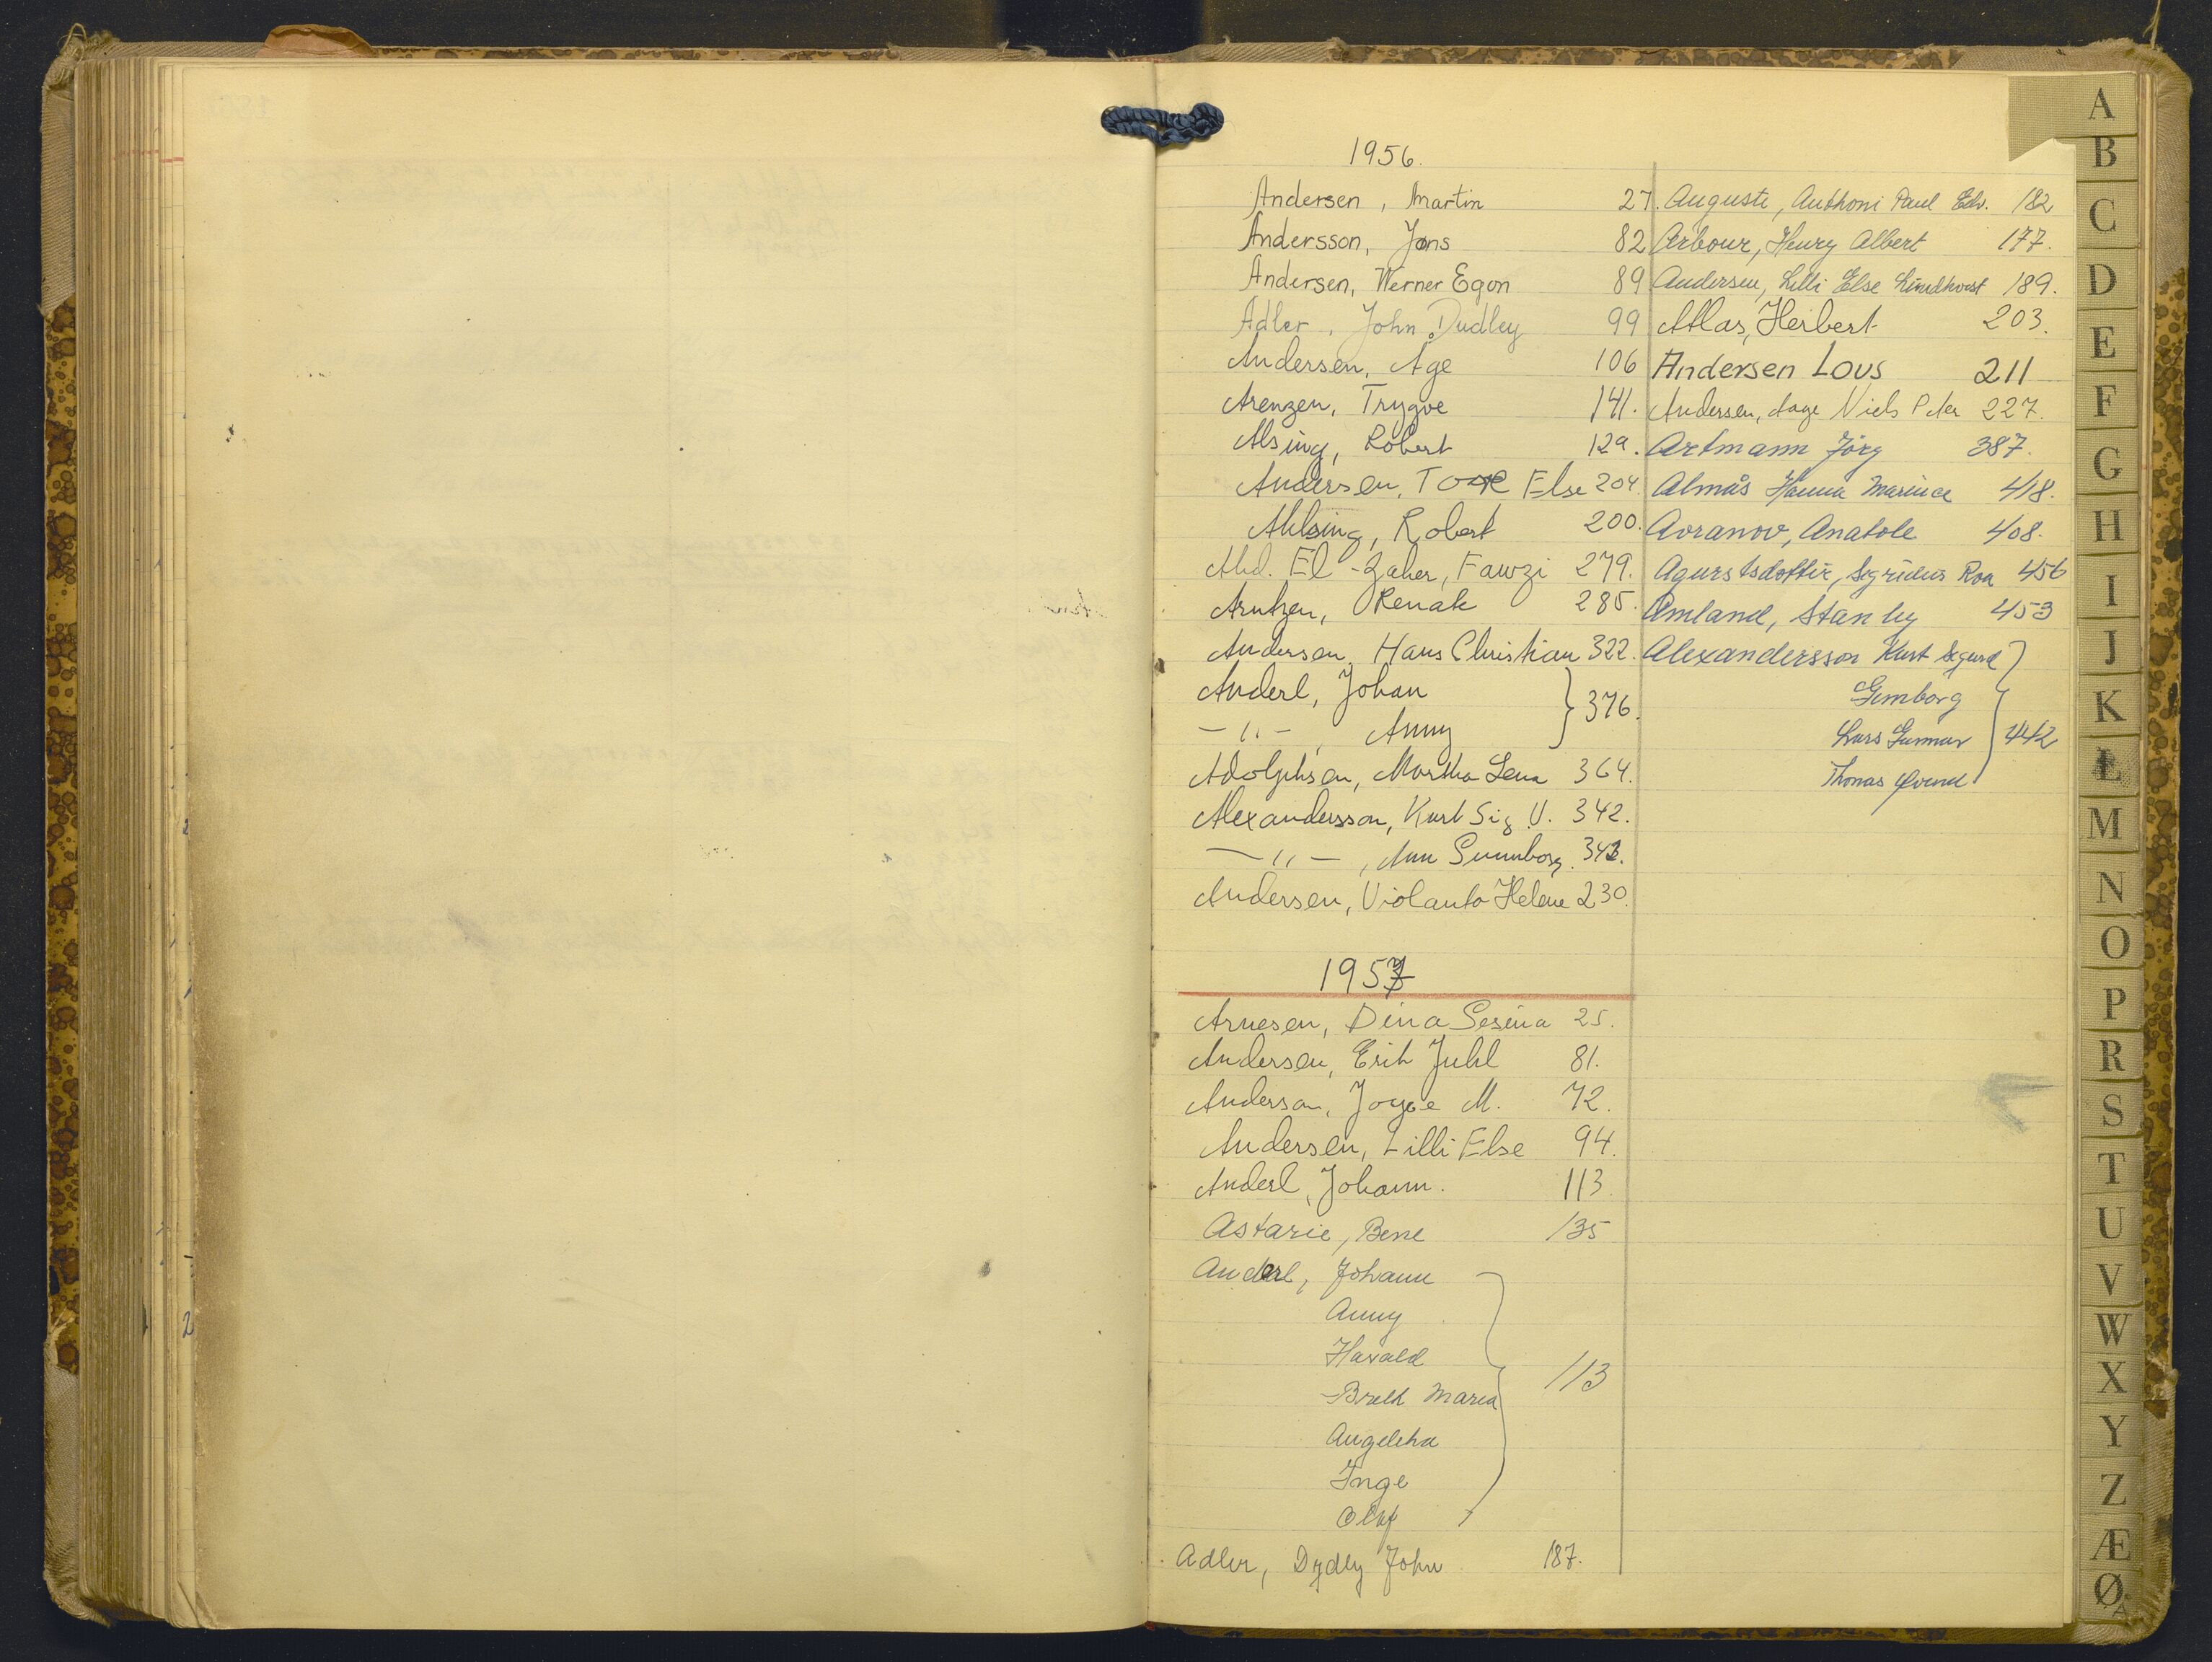 1956.
Andersen, Martin 27.
Andersson, Jøns 82
Andersen, Werner Egon 89
Adler, John Dudley 99
Andersen, Åge 106
Arenzen, Trygve 141.
Alsing, Robert 129.
Andersen, Else 204.
Ahlsing, Robert 200.
Abd. El-Zaher, Fawzi 279.
Arntzen, Renate 285.
Andersen, Hans Christian 322.
Anderl, Johan } 376.
-"-, Anny
Adolphsen, Martha Lena 364.
Alexandersson, Kurt Sig. V. 342.
-"-, Ann Gunnborg.
Andersen, Violanta Helene 230.
1957
Arnesen, Dina Gesina 25.
Andersen, Erik Juhl 81.
Anderson, Joyce M. 72.
Andersen, Lilli Else 94.
Anderl, Johann. 113.
Astarie, Bene 135
Anderl, Johann } 113
Anny
Harald
Maria
Angelika
Inge
Olaf
Adler, Dydly John 187.
Auguste, Anthoni Paul Edv. 182
Arbour, Henry Albert 177.
Andersen, Lilli Else Lindhorst 189.
Atlas, Herbert 203.
Andersen Lous 211
Andersen, Aage Niels Peter 227.
Artmann Jörg 387.
Almås Hanna Marince 418.
Avranov, Anatole 408.
Agurstsdottir, Sigridur Roa 456
Amland, Stanley 453
Alexandersson Kurt Sigurd } 442
Gunborg
Lars Gunnar
Thomas
A
B
C
D
E
F
G
H
I
J
K
L
M
N
O
P
R
S
T
U
V
W
X
Y
Z
Æ
Ø
Å